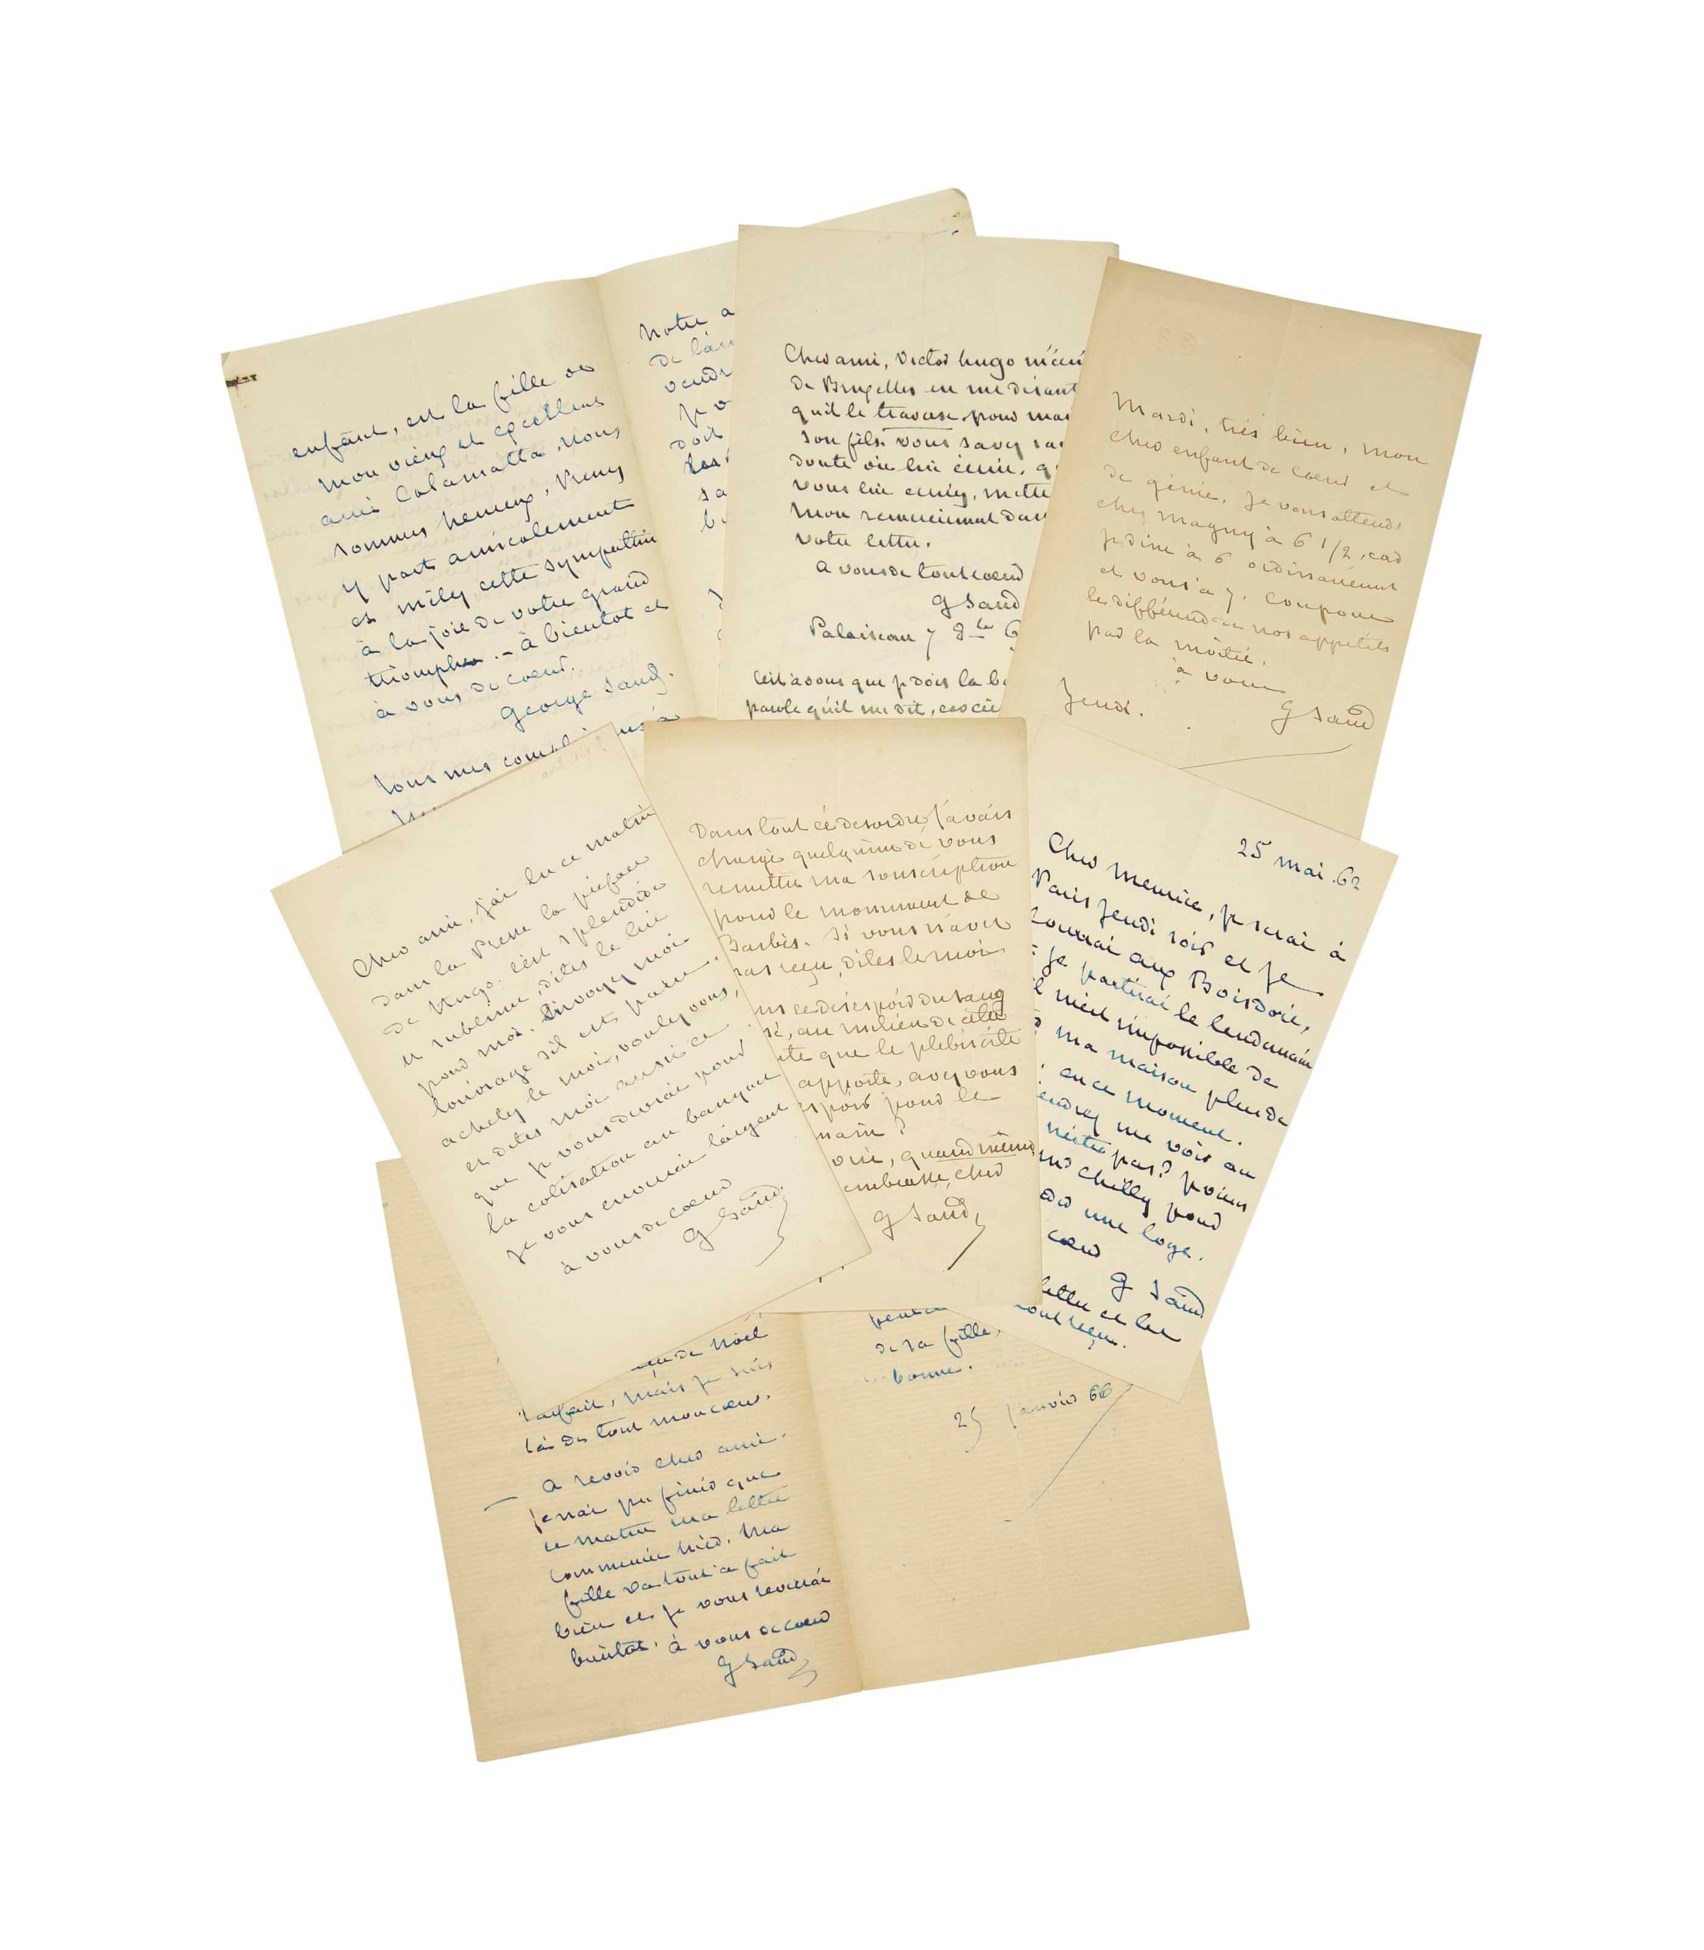 enfant, est la fille de
mon vieux et excellent
ami Calamatta. Nous
sommes heureux, venez
y part amicalement
et mêlez cette sympathie
à la joie de votre grand
triomphe. - à bientôt et
à vous de cœur.
George Sand.
Tous mes
Notre a
de l'am
vendr
po
doit
les
sa
Cher ami, Victor Hugo m'écri
de Bruxelles en me disant
qu'il le traverse pour mar
son fils. Vous savez sa
doute où lui écrire. q
vous lui écrirez, mette
mon remerciement dan
votre lettre.
à vous de tout cœur
G Sand
Palaiseau 7 8bre 6
C'est à vous que je dois la b
parole qu'il me dit,
Mardi, très bien, mon
cher enfant de cœur et
de génie. Je vous attends
chez Magny à 6 1/2, car
je dine à 6 ordinairement
et vous à 7. Coupons
le différend de nos appétits
par la moitié.
à vous
G Sand
Jeudi.
Cher ami, j'ai lu ce matin
dans la Presse la préface
de Hugo. C'est splendide
et sublime, dites le lui
pour moi. Envoyez moi
l'ouvrage s'il est paru.
achetez le moi, voulez vous,
et dites moi aussi ce
que je vous devrai pour
la cotisation au banquet
je vous enverrai l'argent
à vous de cœur
G Sand
Dans tout ce désordre j'avais
chargé quelqu'un de vous
remettre ma souscription
pour le monument de
Barbès. Si vous n'avez
pas reçu, dites le moi
ce désespoir du sang
, au milieu de
te que le plébiscite
apporte, avez vous
espoir pour le
main ?
, quand même
embrasse, cher
G Sand
25 mai. 62
Cher Meurice, je serai à
Paris jeudi soir et je
courrai aux Boisdoré,
je partirai le lendemain
il m'est impossible de
ma maison plus de
en ce moment.
endrez me voir au
n'est ce pas?
Chilly pour
une loge.
cœur
G Sand
lettre et les
ont reçu.
de Noël
parfait, mais je suis
là de tout mon cœur.
à revoir cher ami.
je n'ai pu finir que
ce matin ma lettre
commencée hier. Ma
fille va tout à fait
bien et je vous reverrai
bientôt. à vous de cœur
G Sand
de sa fille,
bonne.
25 janvier 66